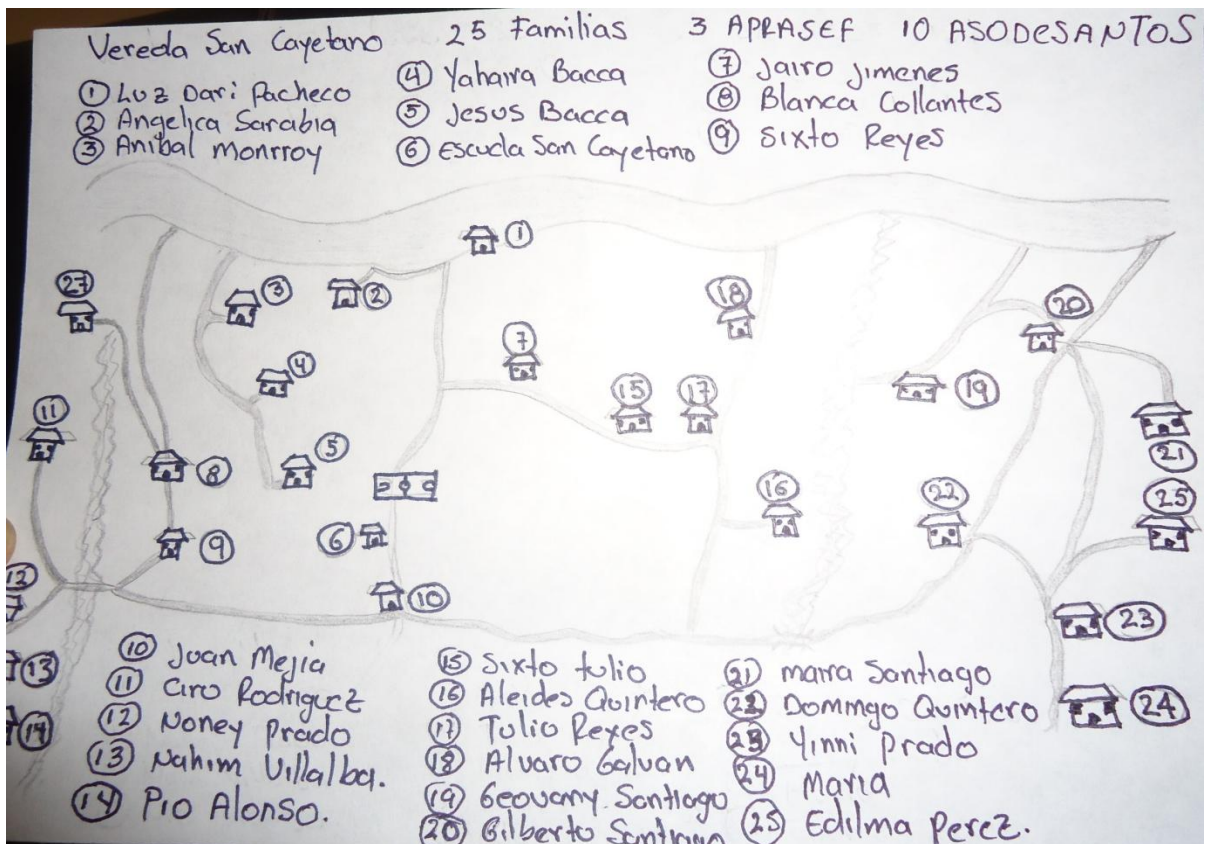 Vereda San Cayetano 25 Familias 3 APRASEF 10 ASODESANTOS
① Luz Dari Pacheco
② Angelica Sarabia
③ Anibal Monrroy
④ Yahaira Bacca
⑤ Jesus Bacca
⑥ Escuela San Cayetano
⑦ Jairo Jimenes
⑧ Blanca Collantes
⑨ Sixto Reyes
①
②
③
④
⑤
⑥
⑦
⑧
⑨
⑩
⑪
⑫
⑬
⑭
⑮
⑯
⑰
⑱
⑲
⑳
㉑
㉒
㉓
㉔
㉕
㉗
⑩ Juan Mejia
⑪ Ciro Rodriguez
⑫ Noney Prado
⑬ Nahim Villalba.
⑭ Pio Alonso.
⑮ Sixto tulio
⑯ Aleides Quintero
⑰ Tulio Reyes
⑱ Alvaro Galvan
⑲ Geovany Santiago
⑳ Gilberto Santiago
㉑ maira Santiago
㉒ Domingo Quintero
㉓ Yinni Prado
㉔ Maria
㉕ Edilma Perez.